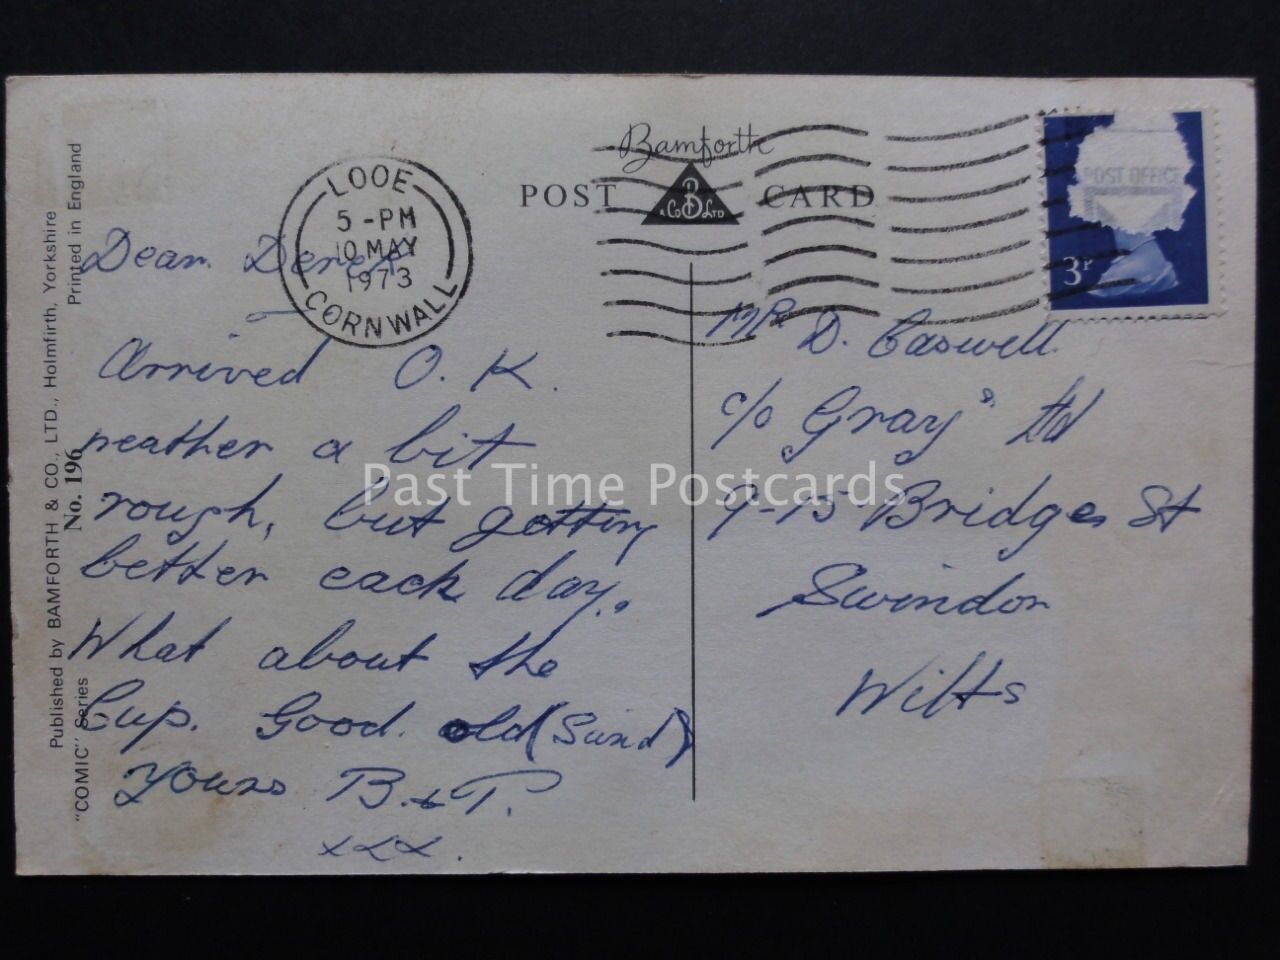 Bamforth
POST CARD
B
& Co LTD
LOOE
5 -PM
10 MAY
1973
CORNWALL
POST OFFICE
3P
Published by BAMFORTH & CO., LTD., Holmfirth, Yorkshire
Printed in England
No. 196
"COMIC" Series
Dear Derek
Arrived O.K.
weather a bit
rough, but getting
better each day.
What about the
Cup. Good old (Sund)
Yours B. & T.
xxx.
Mr D. Caswell
c/o Gray's Ltd
9-15 Bridge St
Swindon
Wilts
Past Time Postcards